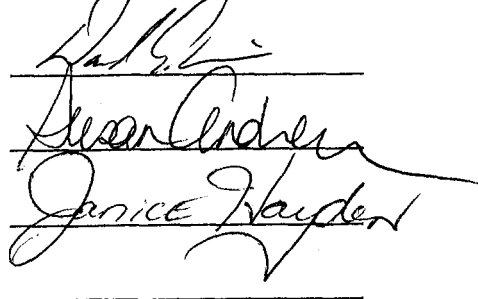 Susan Andrew
Janice Hayden